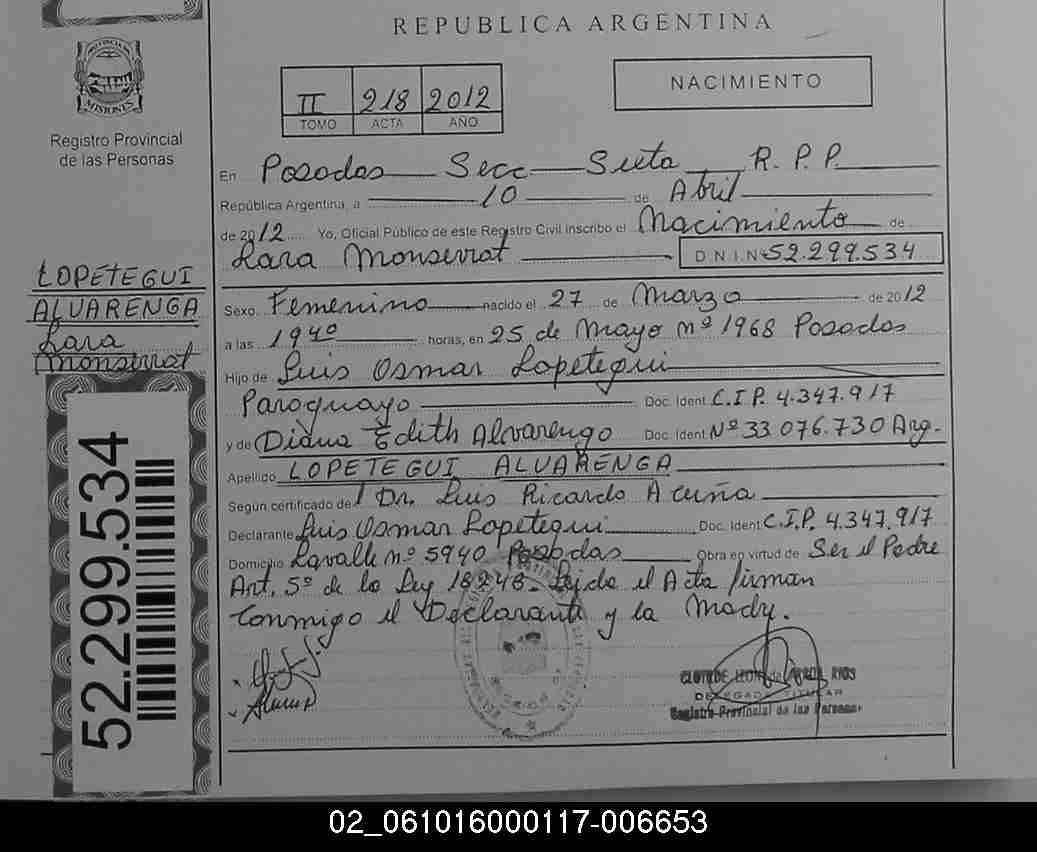 REPUBLICA ARGENTINA
PROVINCIA DE
MISIONES
Registro Provincial
de las Personas
II 218 2012
TOMO ACTA AÑO
NACIMIENTO
En Posadas Secc Sexta R.P.P.
República Argentina, a 10 de Abril
de 2012 Yo, Oficial Público de este Registro Civil inscribo el Nacimiento de
Lara Monserrat D.N.I.Nº 52.299.534
LOPETEGUI
ALVARENGA
Lara
Monserrat
52.299.534
Sexo Femenino nacido el 27 de Marzo de 2012
a las 1940 horas, en 25 de Mayo nº 1968 Posadas
Hijo de Luis Osmar Lopetegui
Paraguayo Doc. Ident C.I.P. 4.347.917
y de Diana Edith Alvarenga Doc. Ident Nº 33.076.730 Arg.
Apellido LOPETEGUI ALVARENGA
Según certificado del Dr. Luis Ricardo Acuña
Declarante Luis Osmar Lopetegui Doc. Ident C.I.P. 4.347.917
Domicilio Lavalle nº 5940 Posadas Obra en virtud de Ser el Padre
Art. 5º de la Ley 18248. Leida el Acta firman
Conmigo el Declarante y la Madre.
DELEGADA TITULAR
Registro Provincial de las Personas
02_061016000117-006653